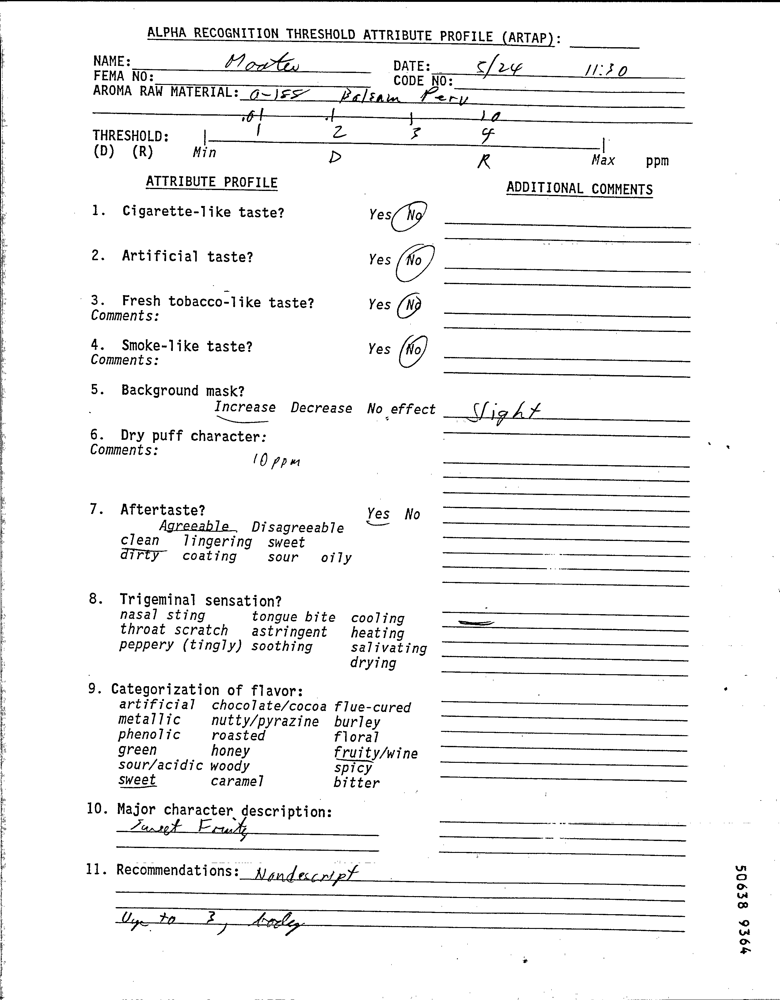 ALPHA RECOGNITION THRESHOLD ATTRIBUTE PROFILE (ARTAP):
NAME: DATE: 5/24 11:30
FEMA NO: CODE NO:
AROMA RAW MATERIAL: 0-155 Balsam Peru
.01 .1 1 10
THRESHOLD: 1 2 3 4
(D) (R) Min D R Max ppm
ATTRIBUTE PROFILE ADDITIONAL COMMENTS
1. Cigarette-like taste? Yes No
2. Artificial taste? Yes No
3. Fresh tobacco-like taste? Yes No
Comments:
4. Smoke-like taste? Yes No
Comments:
5. Background mask?
Increase Decrease No effect Slight
6. Dry puff character:
Comments:
10 ppm
7. Aftertaste? Yes No
Agreeable Disagreeable
clean lingering sweet
dirty coating sour oily
8. Trigeminal sensation?
nasal sting tongue bite cooling
throat scratch astringent heating
peppery (tingly) soothing salivating
drying
9. Categorization of flavor:
artificial chocolate/cocoa flue-cured
metallic nutty/pyrazine burley
phenolic roasted floral
green honey fruity/wine
sour/acidic woody spicy
sweet caramel bitter
10. Major character description:
Sweet Fruity
11. Recommendations: Nondescript
Up to 3, body
50638 9364